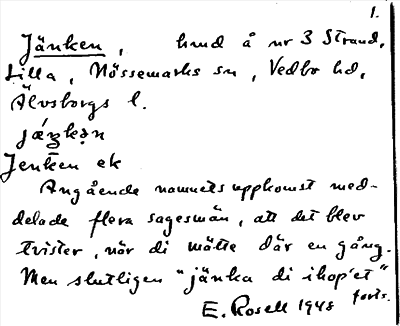 1.
Jänken, hmd å nr 3 Strand,
Lilla, Nössemarks sn, Vedbo hd,
Älvsborgs l.
Jenken ek
Angående namnets uppkomst med-
delade flera sagesmän, att det blev
tvister, när di mötte där en gång.
Men slutligen "jänka di ihop'et"
E. Rosell 1948 forts.